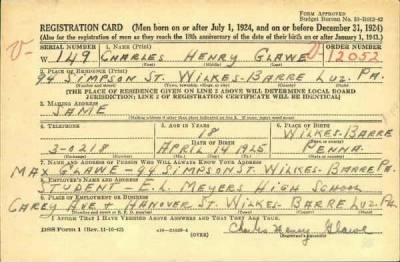 FORM APPROVED
Budget Bureau No. 33-R012-42
REGISTRATION CARD (Men born on or after July 1, 1924, and on or before December 31, 1924)
(Also for the registration of men as they reach the 18th anniversary of the date of their birth on or after January 1, 1943.)
SERIAL NUMBER 1. NAME (Print) ORDER NUMBER
W 149 CHARLES HENRY GLAWE 12052
2. PLACE OF RESIDENCE (Print)
94 SIMPSON ST. WILKES-BARRE LUZ. PA.
[THE PLACE OF RESIDENCE GIVEN ON LINE 2 ABOVE WILL DETERMINE LOCAL BOARD
JURISDICTION; LINE 2 OF REGISTRATION CERTIFICATE WILL BE IDENTICAL]
3. MAILING ADDRESS
SAME
4. TELEPHONE 5. AGE IN YEARS 6. PLACE OF BIRTH
18 WILKES-BARRE
DATE OF BIRTH
3-0218 APRIL 14 1925 PENNA.
7. NAME AND ADDRESS OF PERSON WHO WILL ALWAYS KNOW YOUR ADDRESS
MAX GLAWE - 94 SIMPSON ST. WILKES-BARRE PA.
8. EMPLOYER'S NAME AND ADDRESS
STUDENT - E.L. MEYERS HIGH SCHOOL
9. PLACE OF EMPLOYMENT OR BUSINESS
CAREY AVE + HANOVER ST. WILKES-BARRE LUZ. PA.
I AFFIRM THAT I HAVE VERIFIED ABOVE ANSWERS AND THAT THEY ARE TRUE.
DSS Form 1 (Rev. 11-16-42) (OVER) Charles Henry Glawe